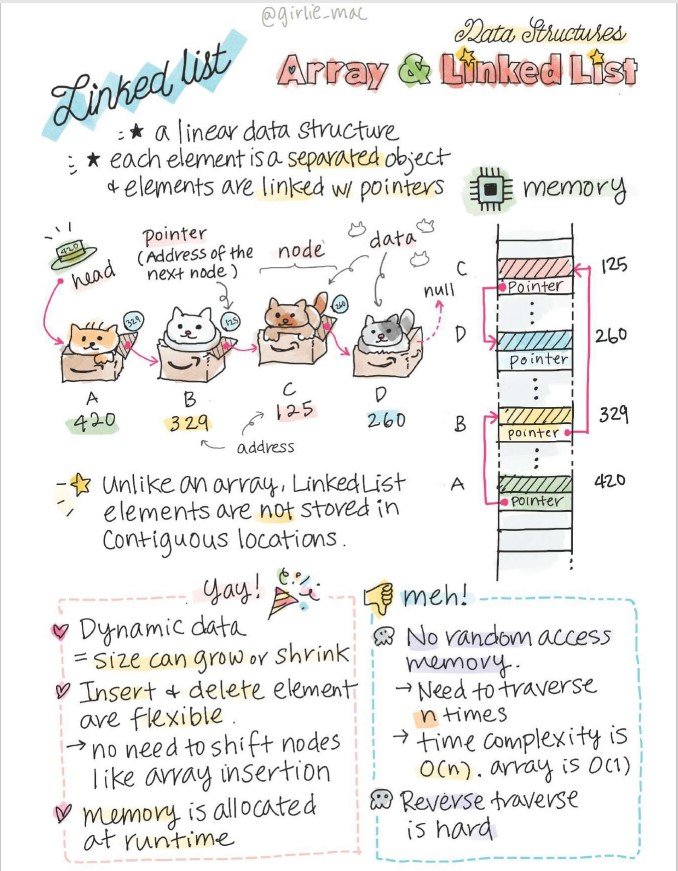 @girlie_mac
Data Structures
Array & Linked List
Linked list
★ a linear data structure
★ each element is a separated object
& elements are linked w/ pointers
memory
420
head
pointer
(Address of the
next node)
node
data
null
329
125
260
A
B
C
D
420
329
125
260
address
C
125
Pointer
D
260
pointer
B
329
pointer
A
420
pointer
Unlike an array, LinkedList
elements are not stored in
contiguous locations.
yay!
Dynamic data
= size can grow or shrink
Insert & delete element
are flexible.
→ no need to shift nodes
like array insertion
memory is allocated
at runtime
meh!
No random access
memory.
→ Need to traverse
n times
→ time complexity is
O(n). array is O(1)
Reverse traverse
is hard